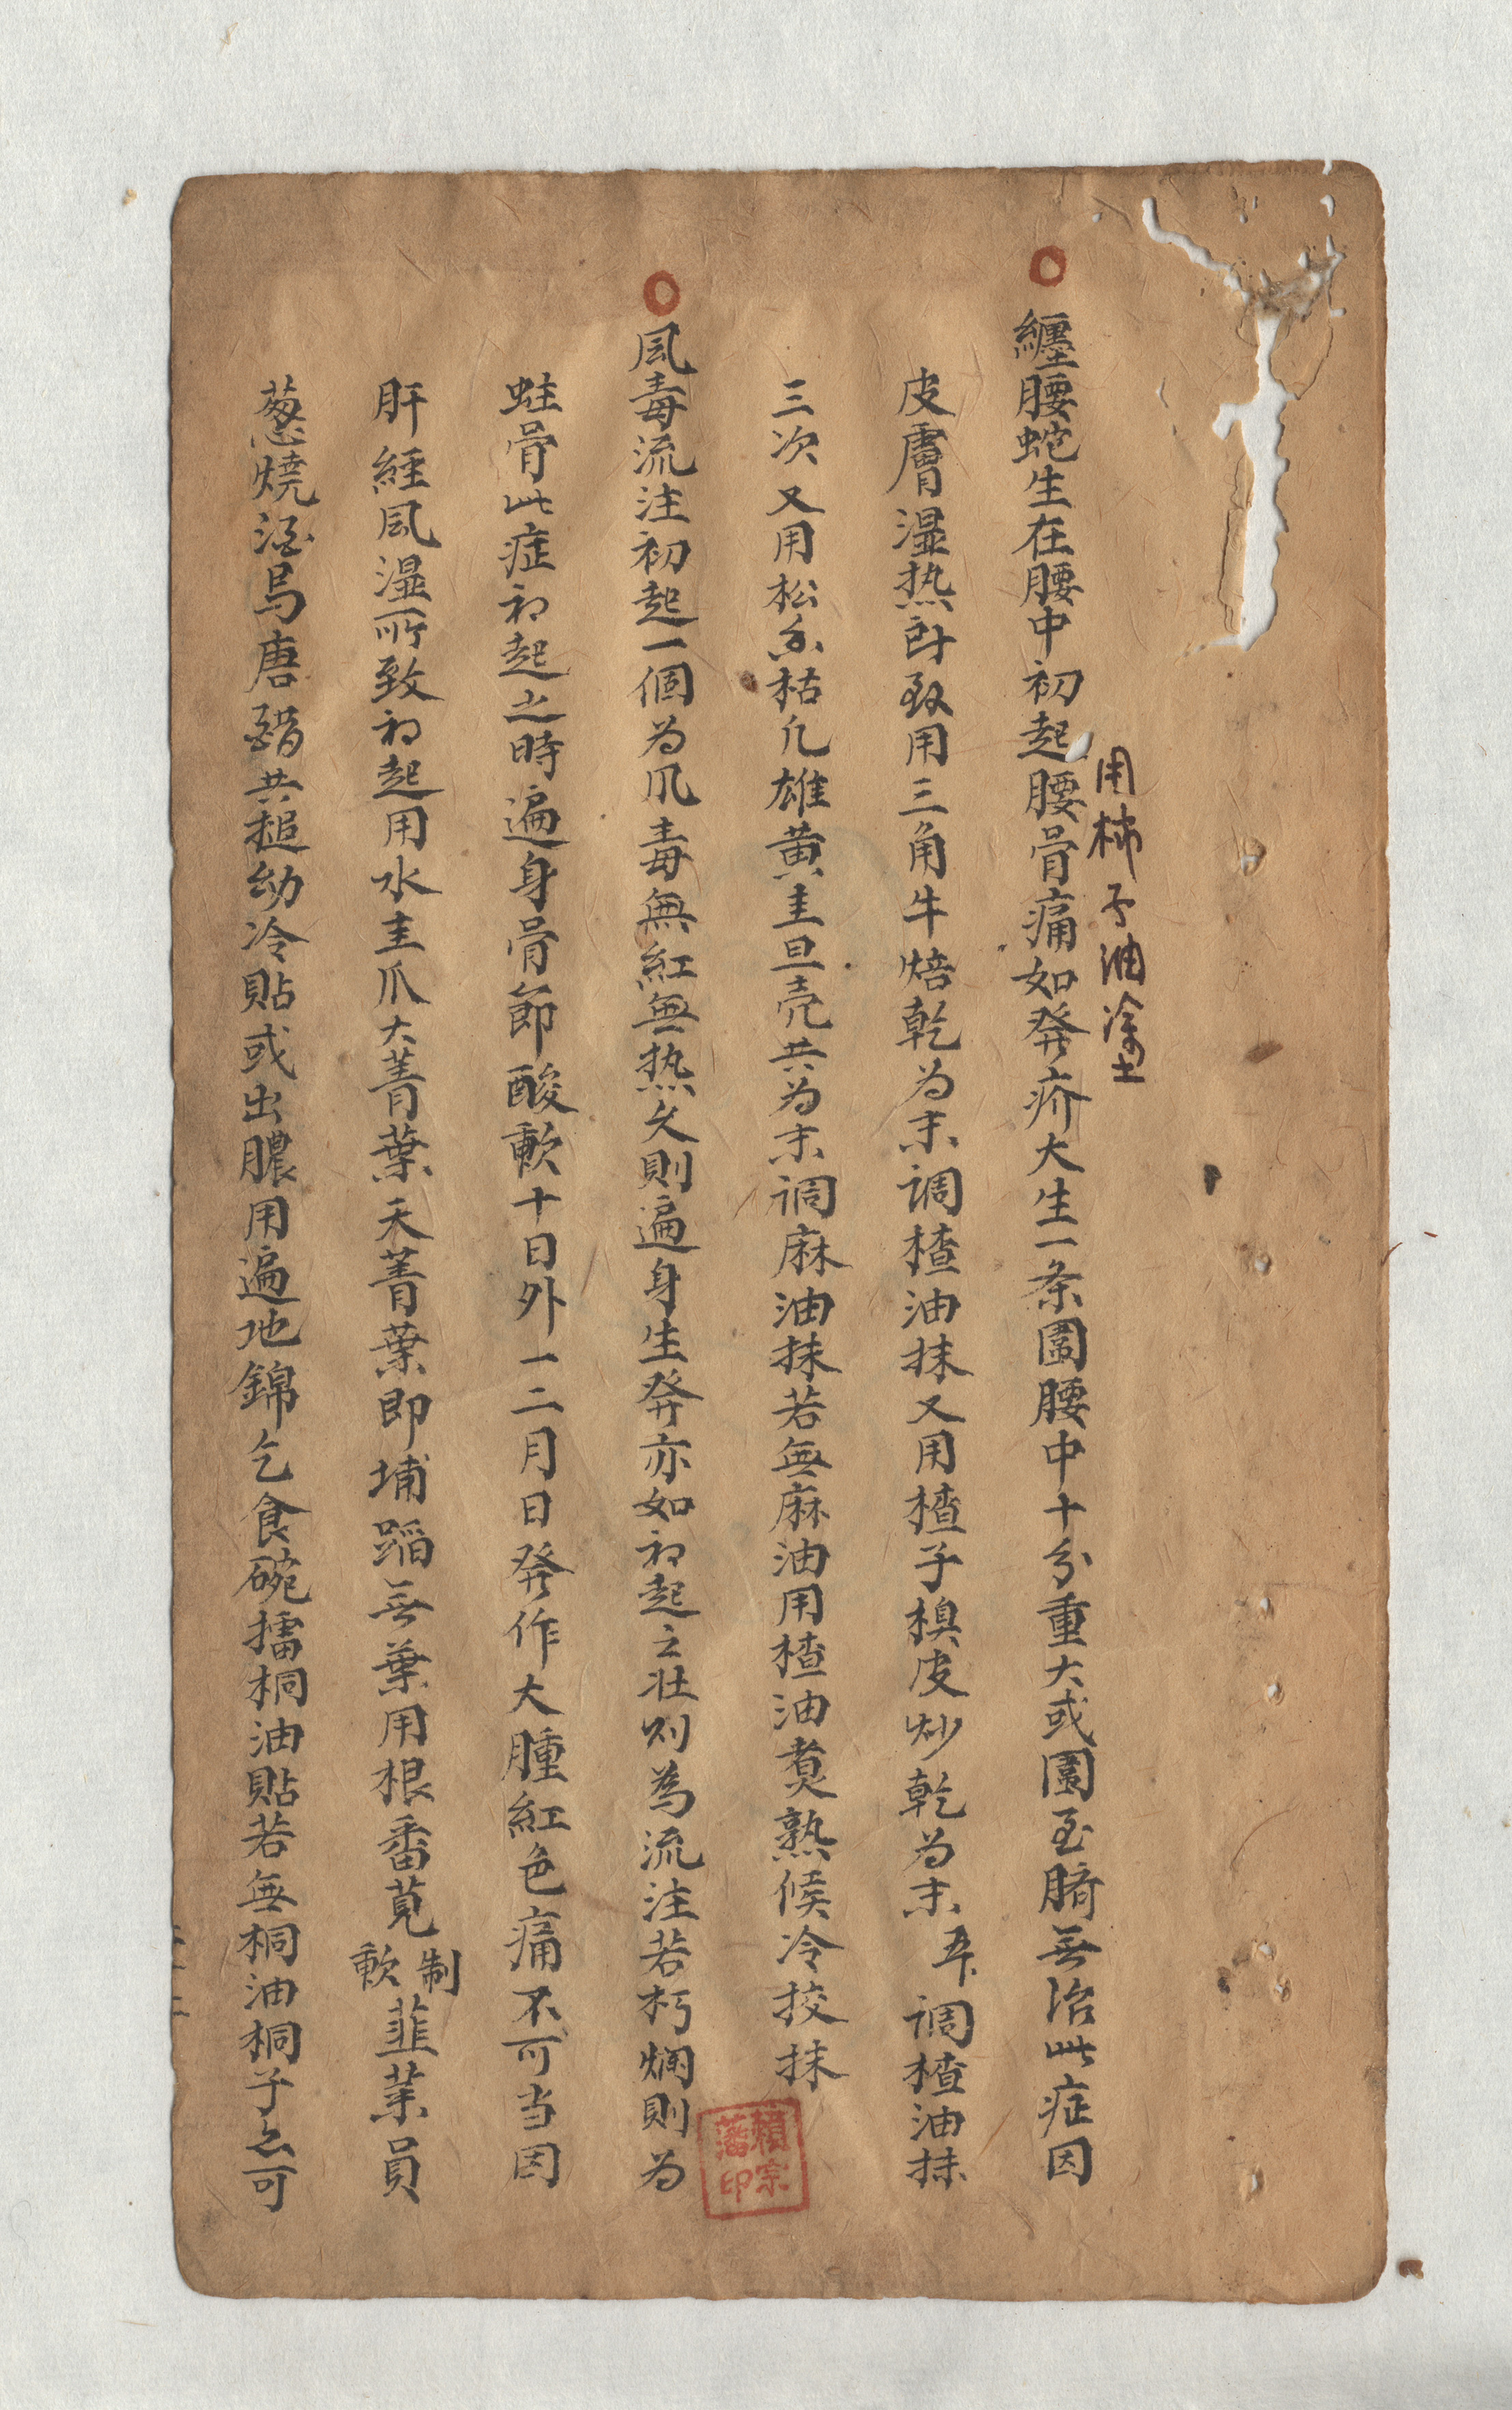 用柿子油塗
纏腰蛇生在腰中初起腰骨痛如發疥大生一条圍腰中十分重大或圍至臍無治此症因
皮膚湿热所致用三角牛焙乾为末调楂油抹又用楂子樸皮炒乾为末 调楂油抹
三次又用松糸枯凡雄黄圭旦壳共为末调麻油抹若無麻油用楂油煑熟候冷挍抹
風毒流注初起一個为風毒無紅無热久則遍身生發亦如初起之壮则為流注若朽爛則为
蛀骨此症初起之時遍身骨節酸軟十日外一二月日發作大腫紅色痛不可当因
肝經風湿所致初起用水圭爪大菁葉禾菁葉即埔蹈無葉用根番莧制軟韮菜員
葱燒酒烏唐醋共搥幼冷貼或出膿用遍地錦乞食碗擂桐油貼若無桐油桐子亦可
賴宗藩印